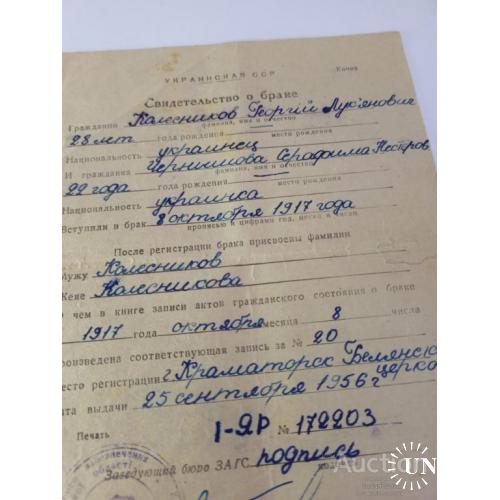 УКРАИНСКАЯ ССР
Копия
Свидетельство о браке
Гражданин Колесников Георгій Лук'янович
фамилия, имя и отчество
28 лет года рождения место рождения
Национальность украинец
И гражданка Чернишова Серафима Петров
фамилия, имя и отчество
22 года года рождения место рождения
Национальность украинка
Вступили в брак 8 октября 1917 года
прописью и цифрами год, месяц и число
После регистрации брака присвоены фамилии
Мужу Колесников
Жене Колесникова
О чем в книге записи актов гражданского состояния о браке
1917 года октября месяца 8 числа
произведена соответствующая запись за № 20
место регистрации г. Краматорск Белянск
церков
дата выдачи 25 сентября 1956 г
1-ЯР № 172203
Печать
Заведующий бюро ЗАГС подпись
Auction
UN